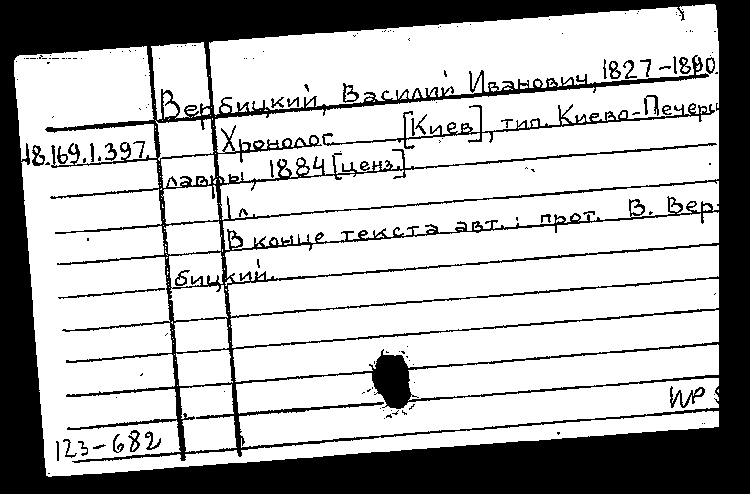 Вербицкий, Василий Иванович, 1827-1890.
18.169.1.397. Хронолог [Киев], тип. Киево-Печерс
лавры, 1884 [ценз.].
1 л.
В конце текста авт.: прот. В. Вер-
бицкий.
123-682